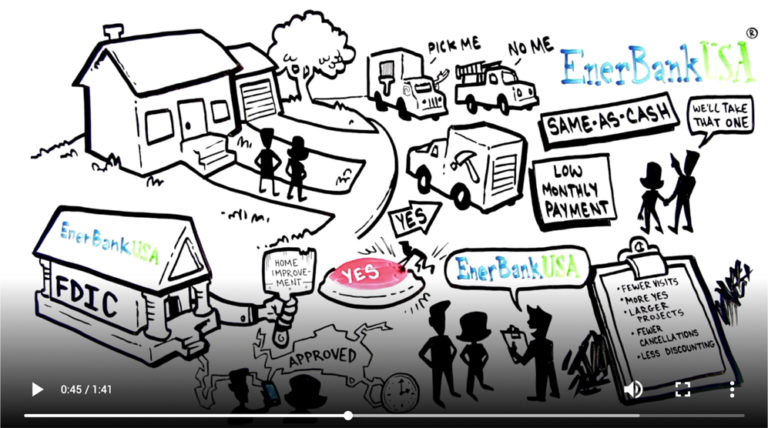 PICK ME
NO ME
EnerBankUSA®
SAME-AS-CASH
WE'LL TAKE
THAT ONE
LOW
MONTHLY
PAYMENT
YES
EnerBankUSA
FDIC
HOME
IMPROVE-
MENT
YES
EnerBankUSA
• FEWER VISITS
• MORE YES
• LARGER
PROJECTS
• FEWER
CANCELLATIONS
• LESS DISCOUNTING
APPROVED
0:45 / 1:41